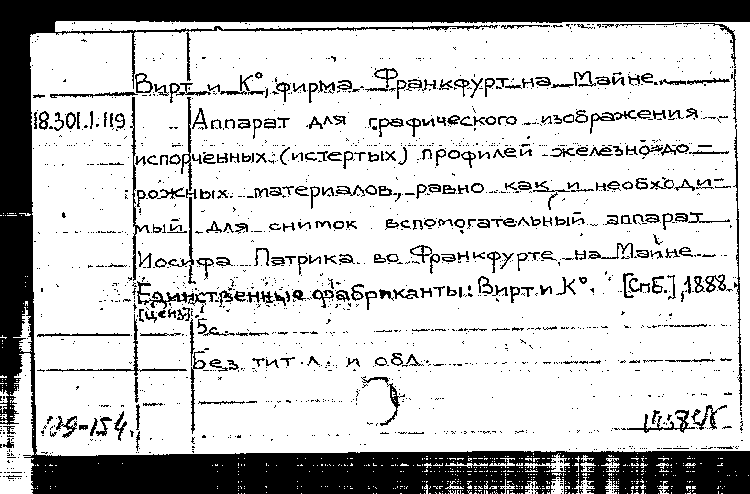 Вирт и К°, фирма. Франкфурт на Майне.
18.301.1.119 Аппарат для графического изображения
испорченных (истертых) профилей железно-до-
рожных материалов, равно как и необходи-
мый для снимок вспомогательный аппарат
Иосифа Патрика во Франкфурте на Майне
Единственные фабриканты: Вирт и К°. [СпБ.], 1888.
[ценз.]
8с.
Без тит. л. и обл.
109-154.